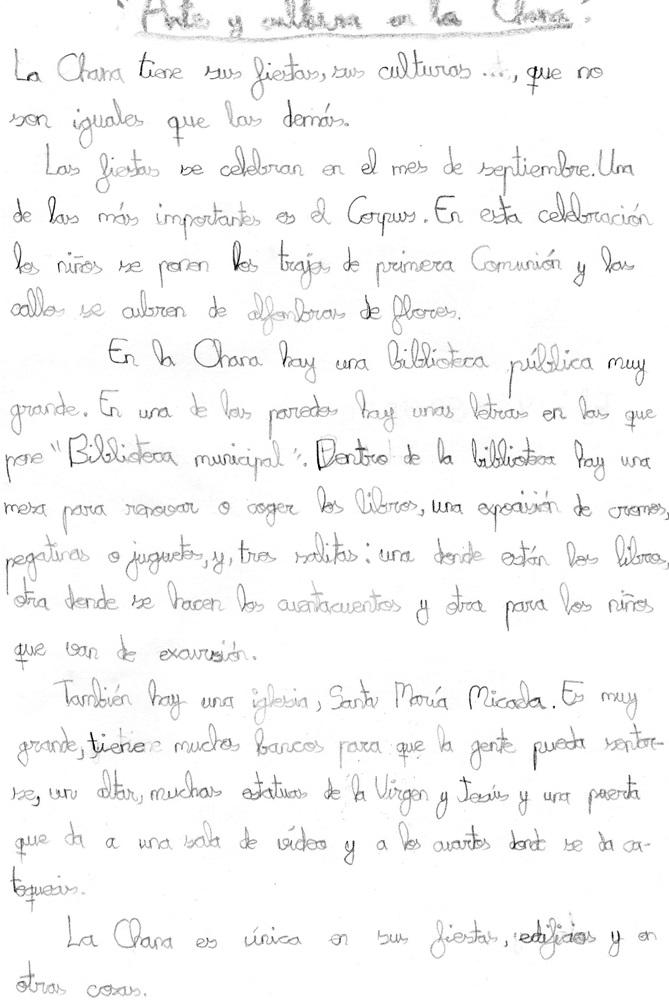 "Arte y cultura en la Chana".
La Chana tiene sus fiestas, sus culturas ..., que no
son iguales que las demás.
Las fiestas se celebran en el mes de septiembre. Una
de las más importantes es el Corpus. En esta celebración
los niños se ponen los trajes de primera Comunión y las
calles se cubren de alfombras de flores.
En la Chana hay una biblioteca pública muy
grande. En una de las paredes hay unas letras en las que
pone "Biblioteca municipal". Dentro de la biblioteca hay una
mesa para renovar o coger los libros, una exposición de cromos,
pegatinas o juguetes, y, tres salitas: una donde están los libros,
otra donde se hacen los cuentacuentos y otra para los niños
que van de excursión.
También hay una iglesia, Santa María Micaela. Es muy
grande, tiene muchos bancos para que la gente pueda sentar-
se, un altar, muchas estatuas de la Virgen y Jesús y una puerta
que da a una sala de vídeo y a los cuartos donde se da ca-
tequesis.
La Chana es única en sus fiestas, edificios y en
otras cosas.